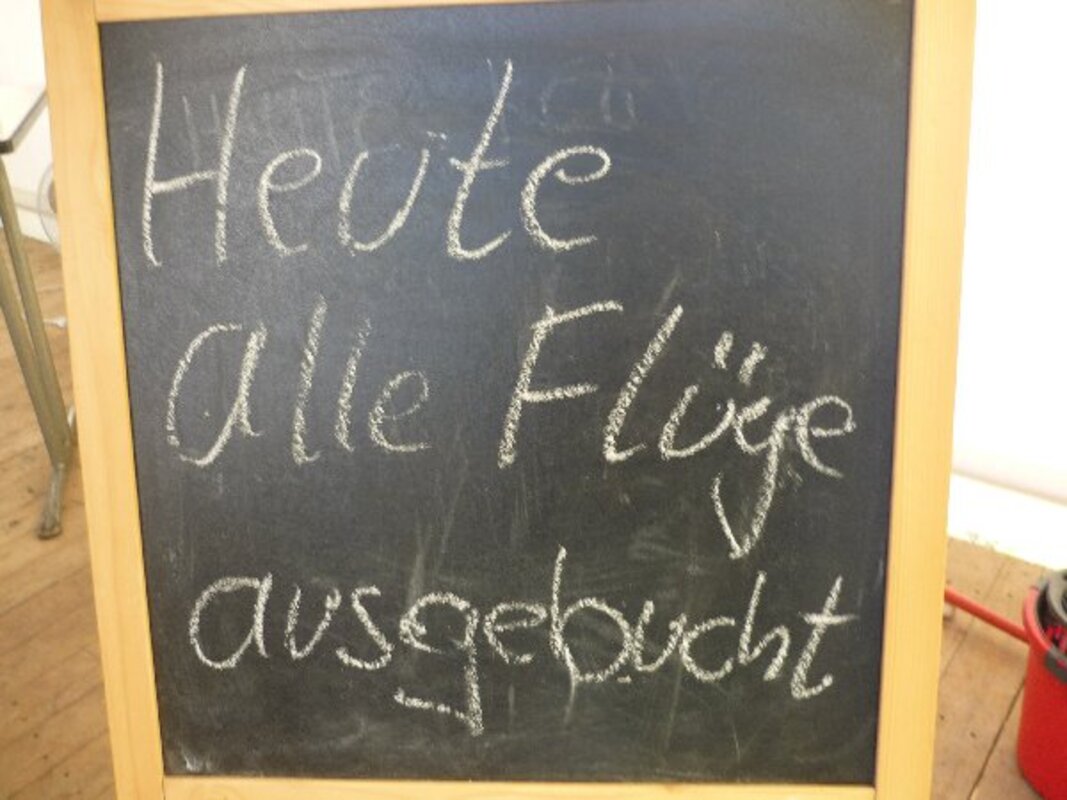 Heute
alle Flüge
ausgebucht